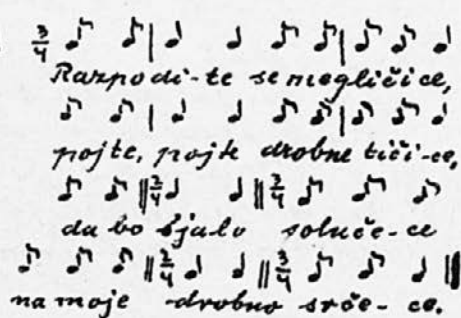 3/4
Razpodi-te se megličice,
pojte, pojte drobne tiči-ce,
2/4 3/4
da bo sjalo solnče-ce
2/4 3/4
na moje drobno srče-ce.